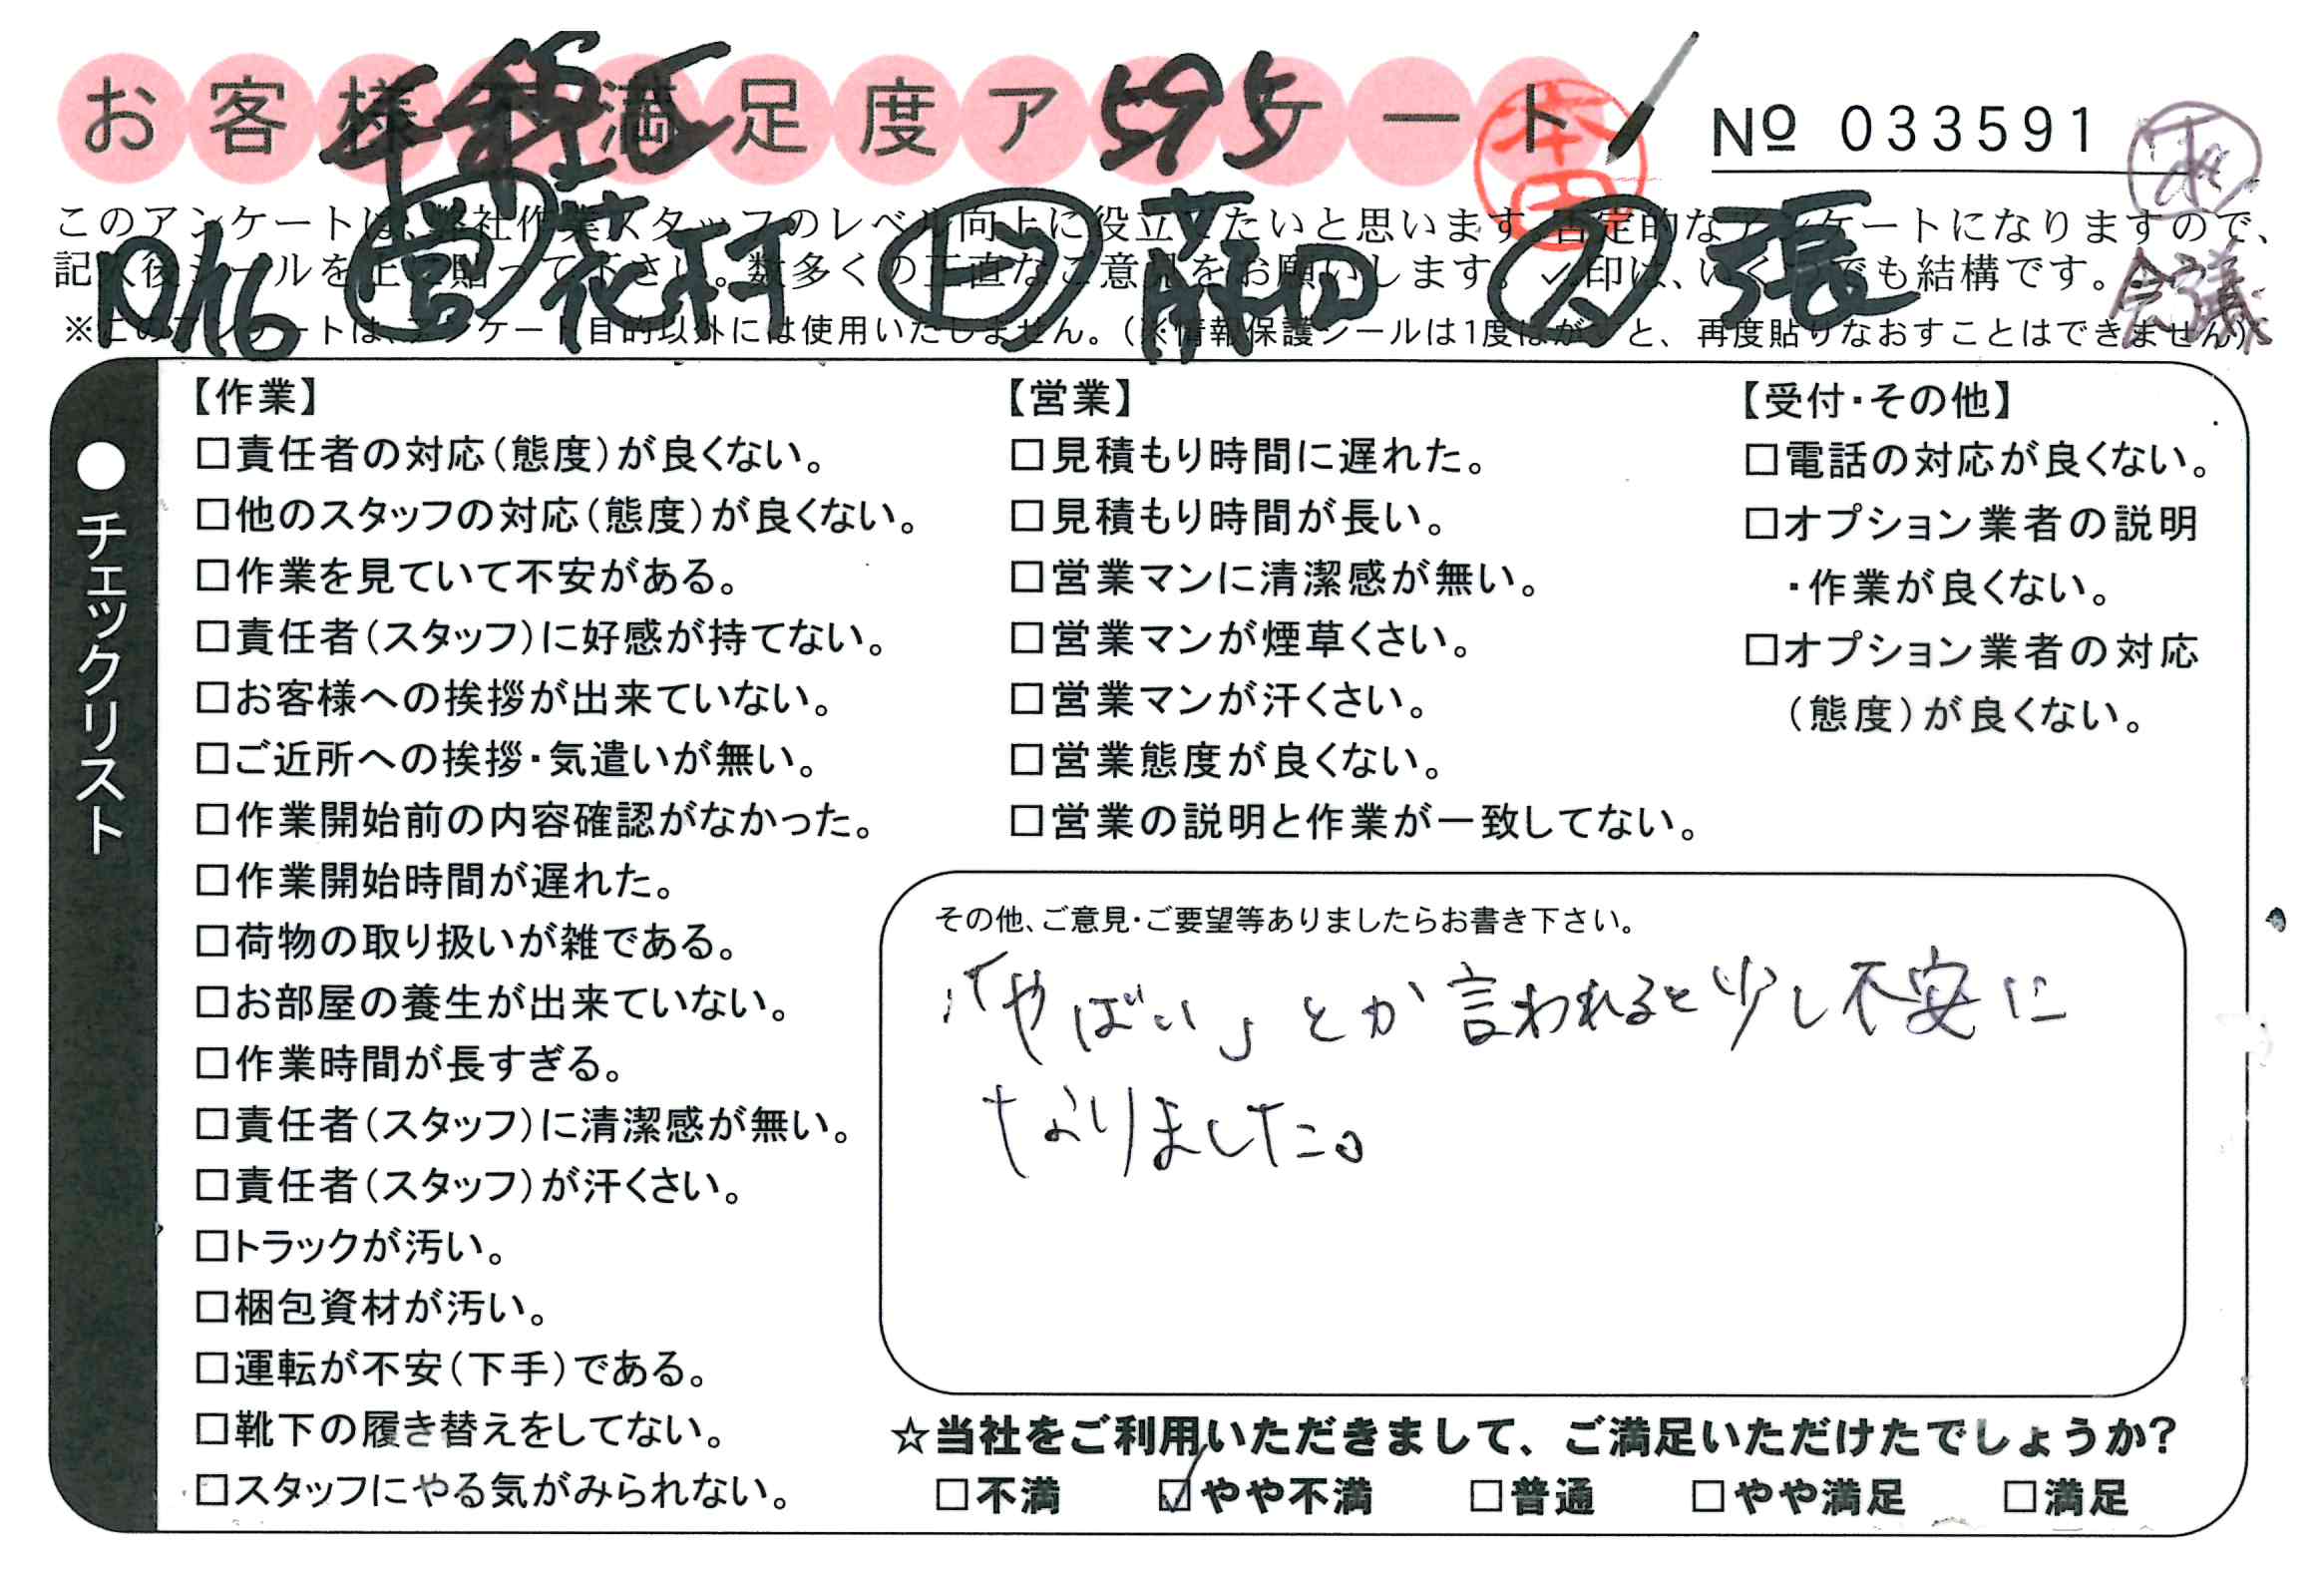 お客様満足度アンケート
595
本田
№ 033591
このアンケートは、弊社作業スタッフのレベル向上に役立てたいと思います。否定的なアンケートになりますので、
記入後シールを上に貼って下さい。数多くの正直なご意見をお願いします。✓印は、いくつでも結構です。
10/16 営 花村 張
会議
※このアンケートは、アンケート目的以外には使用いたしません。(※情報保護シールは1度はがすと、再度貼りなおすことはできません)
●チェックリスト
【作業】
□責任者の対応(態度)が良くない。
□他のスタッフの対応(態度)が良くない。
□作業を見ていて不安がある。
□責任者(スタッフ)に好感が持てない。
□お客様への挨拶が出来ていない。
□ご近所への挨拶・気遣いが無い。
□作業開始前の内容確認がなかった。
□作業開始時間が遅れた。
□荷物の取り扱いが雑である。
□お部屋の養生が出来ていない。
□作業時間が長すぎる。
□責任者(スタッフ)に清潔感が無い。
□責任者(スタッフ)が汗くさい。
□トラックが汚い。
□梱包資材が汚い。
□運転が不安(下手)である。
□靴下の履き替えをしてない。
□スタッフにやる気がみられない。
【営業】
□見積もり時間に遅れた。
□見積もり時間が長い。
□営業マンに清潔感が無い。
□営業マンが煙草くさい。
□営業マンが汗くさい。
□営業態度が良くない。
□営業の説明と作業が一致してない。
【受付・その他】
□電話の対応が良くない。
□オプション業者の説明
・作業が良くない。
□オプション業者の対応
(態度)が良くない。
その他、ご意見・ご要望等ありましたらお書き下さい。
「やばい」とか言われると少し不安に
なりました。
☆当社をご利用いただきまして、ご満足いただけたでしょうか?
□不満 ☑やや不満 □普通 □やや満足 □満足